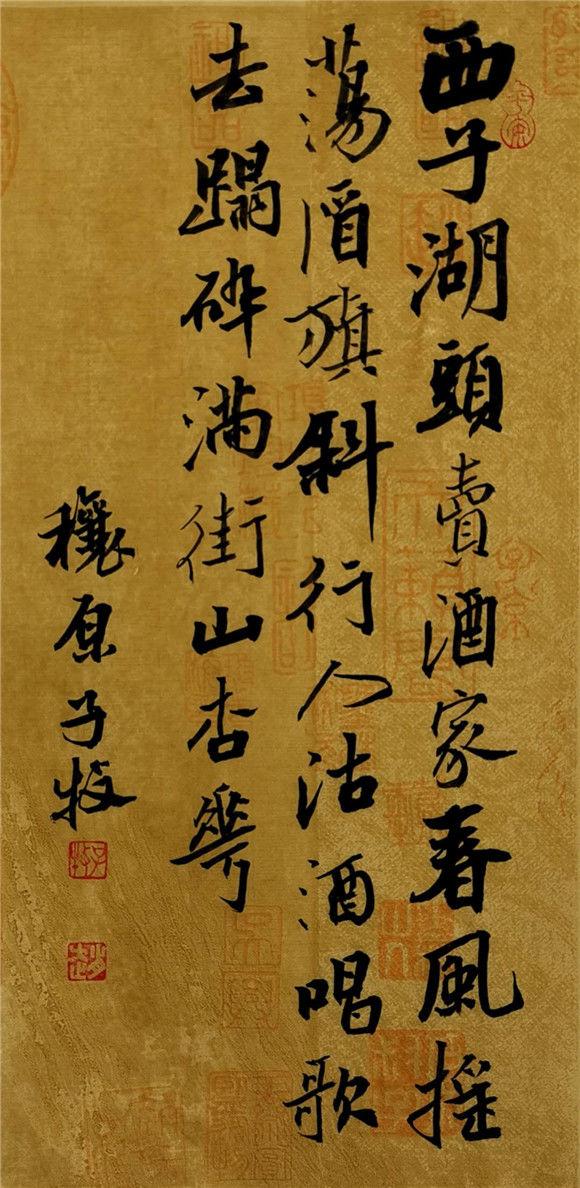 西子湖頭賣酒家春風搖
蕩酒旗斜行人沽酒唱歌
去蹋碎滿街山杏華
穰原子牧